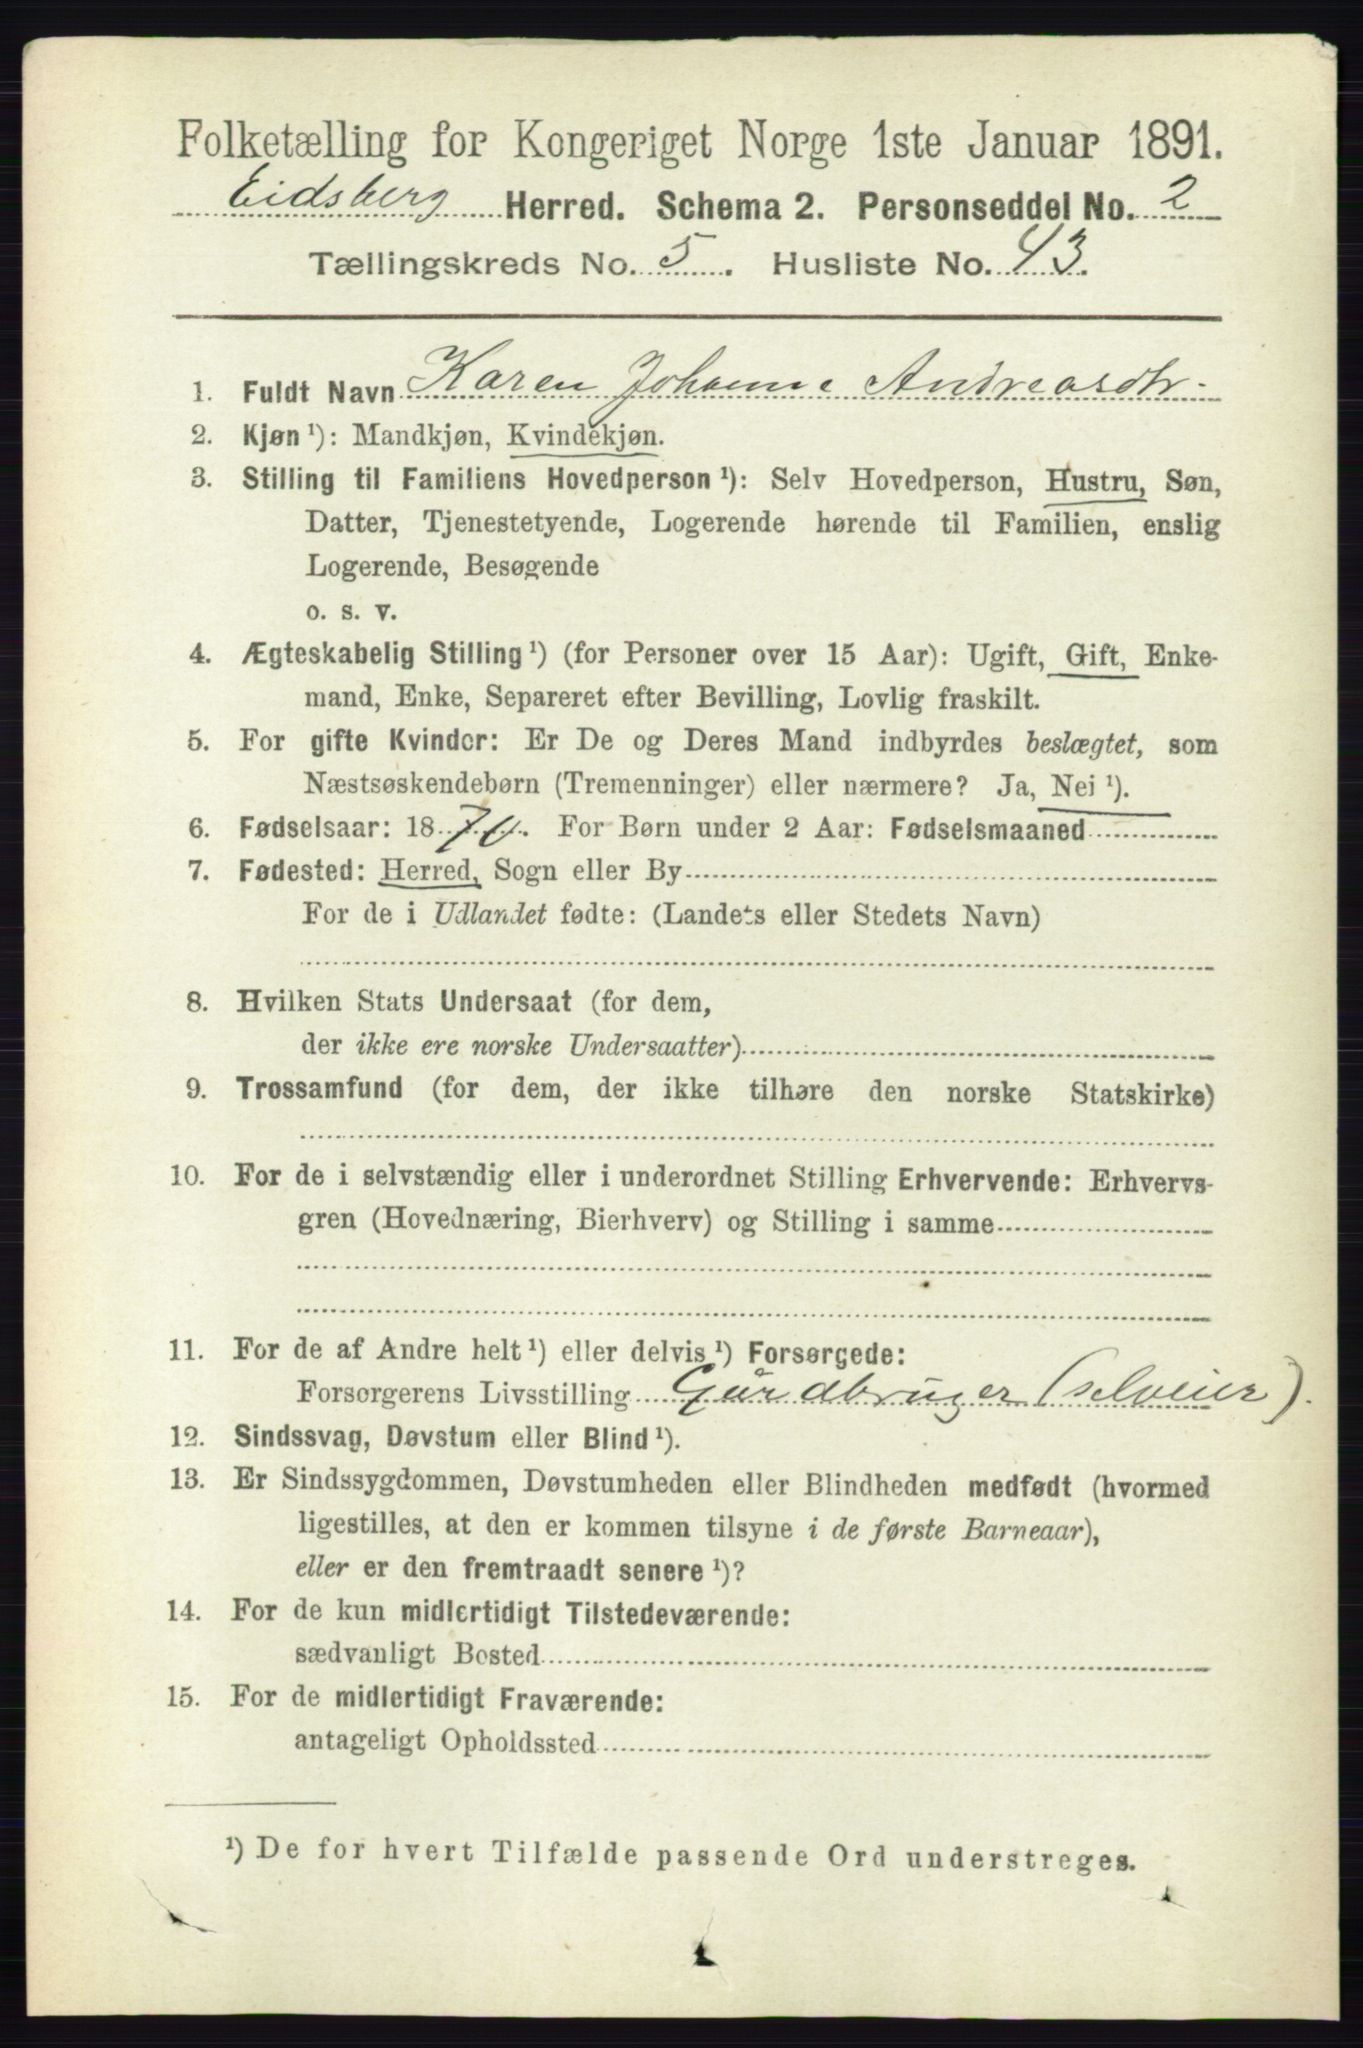 Folketælling for Kongeriget Norge 1ste Januar 1891.
Eidsberg Herred. Schema 2. Personseddel No. 2
Tællingskreds No. 5. Husliste No. 43.
1. Fuldt Navn Karen Johanne Andreasdtr.
2. Kjøn ¹): Mandkjøn, Kvindekjøn.
3. Stilling til Familiens Hovedperson ¹): Selv Hovedperson, Hustru, Søn,
Datter, Tjenestetyende, Logerende hørende til Familien, enslig
Logerende, Besøgende
o. s. v.
4. Ægteskabelig Stilling ¹) (for Personer over 15 Aar): Ugift, Gift, Enke-
mand, Enke, Separeret efter Bevilling, Lovlig fraskilt.
5. For gifte Kvinder: Er De og Deres Mand indbyrdes beslægtet, som
Næstsøskendebørn (Tremenninger) eller nærmere? Ja, Nei ¹).
6. Fødselsaar: 1870. For Børn under 2 Aar: Fødselsmaaned
7. Fødested: Herred, Sogn eller By
For de i Udlandet fødte: (Landets eller Stedets Navn)
8. Hvilken Stats Undersaat (for dem,
der ikke ere norske Undersaatter)
9. Trossamfund (for dem, der ikke tilhøre den norske Statskirke)
10. For de i selvstændig eller i underordnet Stilling Erhvervende: Erhvervs-
gren (Hovednæring, Bierhverv) og Stilling i samme
11. For de af Andre helt ¹) eller delvis ¹) Forsørgede:
Forsørgerens Livsstilling Gårdbruger (selveier).
12. Sindssvag, Døvstum eller Blind ¹).
13. Er Sindssygdommen, Døvstumheden eller Blindheden medfødt (hvormed
ligestilles, at den er kommen tilsyne i de første Barneaar),
eller er den fremtraadt senere ¹)?
14. For de kun midlertidigt Tilstedeværende:
sædvanligt Bosted
15. For de midlertidigt Fraværende:
antageligt Opholdssted
¹) De for hvert Tilfælde passende Ord understreges.